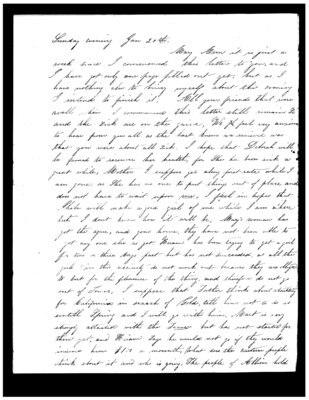 Sunday evening Jan 20th.
Mary Ann it is just a
week since I commenced this letter to you, and
I have got only one page filled out yet, but as I
have nothing else to busy myself about this evening
I intend to finish it. All your friends that were
well when I commenced this letter still remain so
and the sick are on the gain. We feel very anxious
to hear from you all as the last news we received was
that you were about all sick. I hope that Deborah will
be found to recover her health, for she has been sick a
great while, Mother I suppose get along first rate while I
am gone as she has no one to put things out of place and
does not have to wait upon me. I feel in hopes that
I shall make a good girl of me while I am
but I dont know how it will be, Mary's woman has
got the ague, and gone home, they have not been able to
get any one else as yet. Hiram has been trying to get a girl
for two or three days past but has not succeeded, as all the
girls in this vicinity do not work out
but for the pleasure of the thing and therefore do not go
out of Town. I suppose that Father thinks about starting
for California in search of Gold, tell him not to do it
untill Spring and I will go with him. Mart is very
strongly attacked with the fever but has not started for
there yet, and Hiram says he would not go if they would
insure him $100 a month, What does the eastern people
think about it and who is going. The people of Albion hold